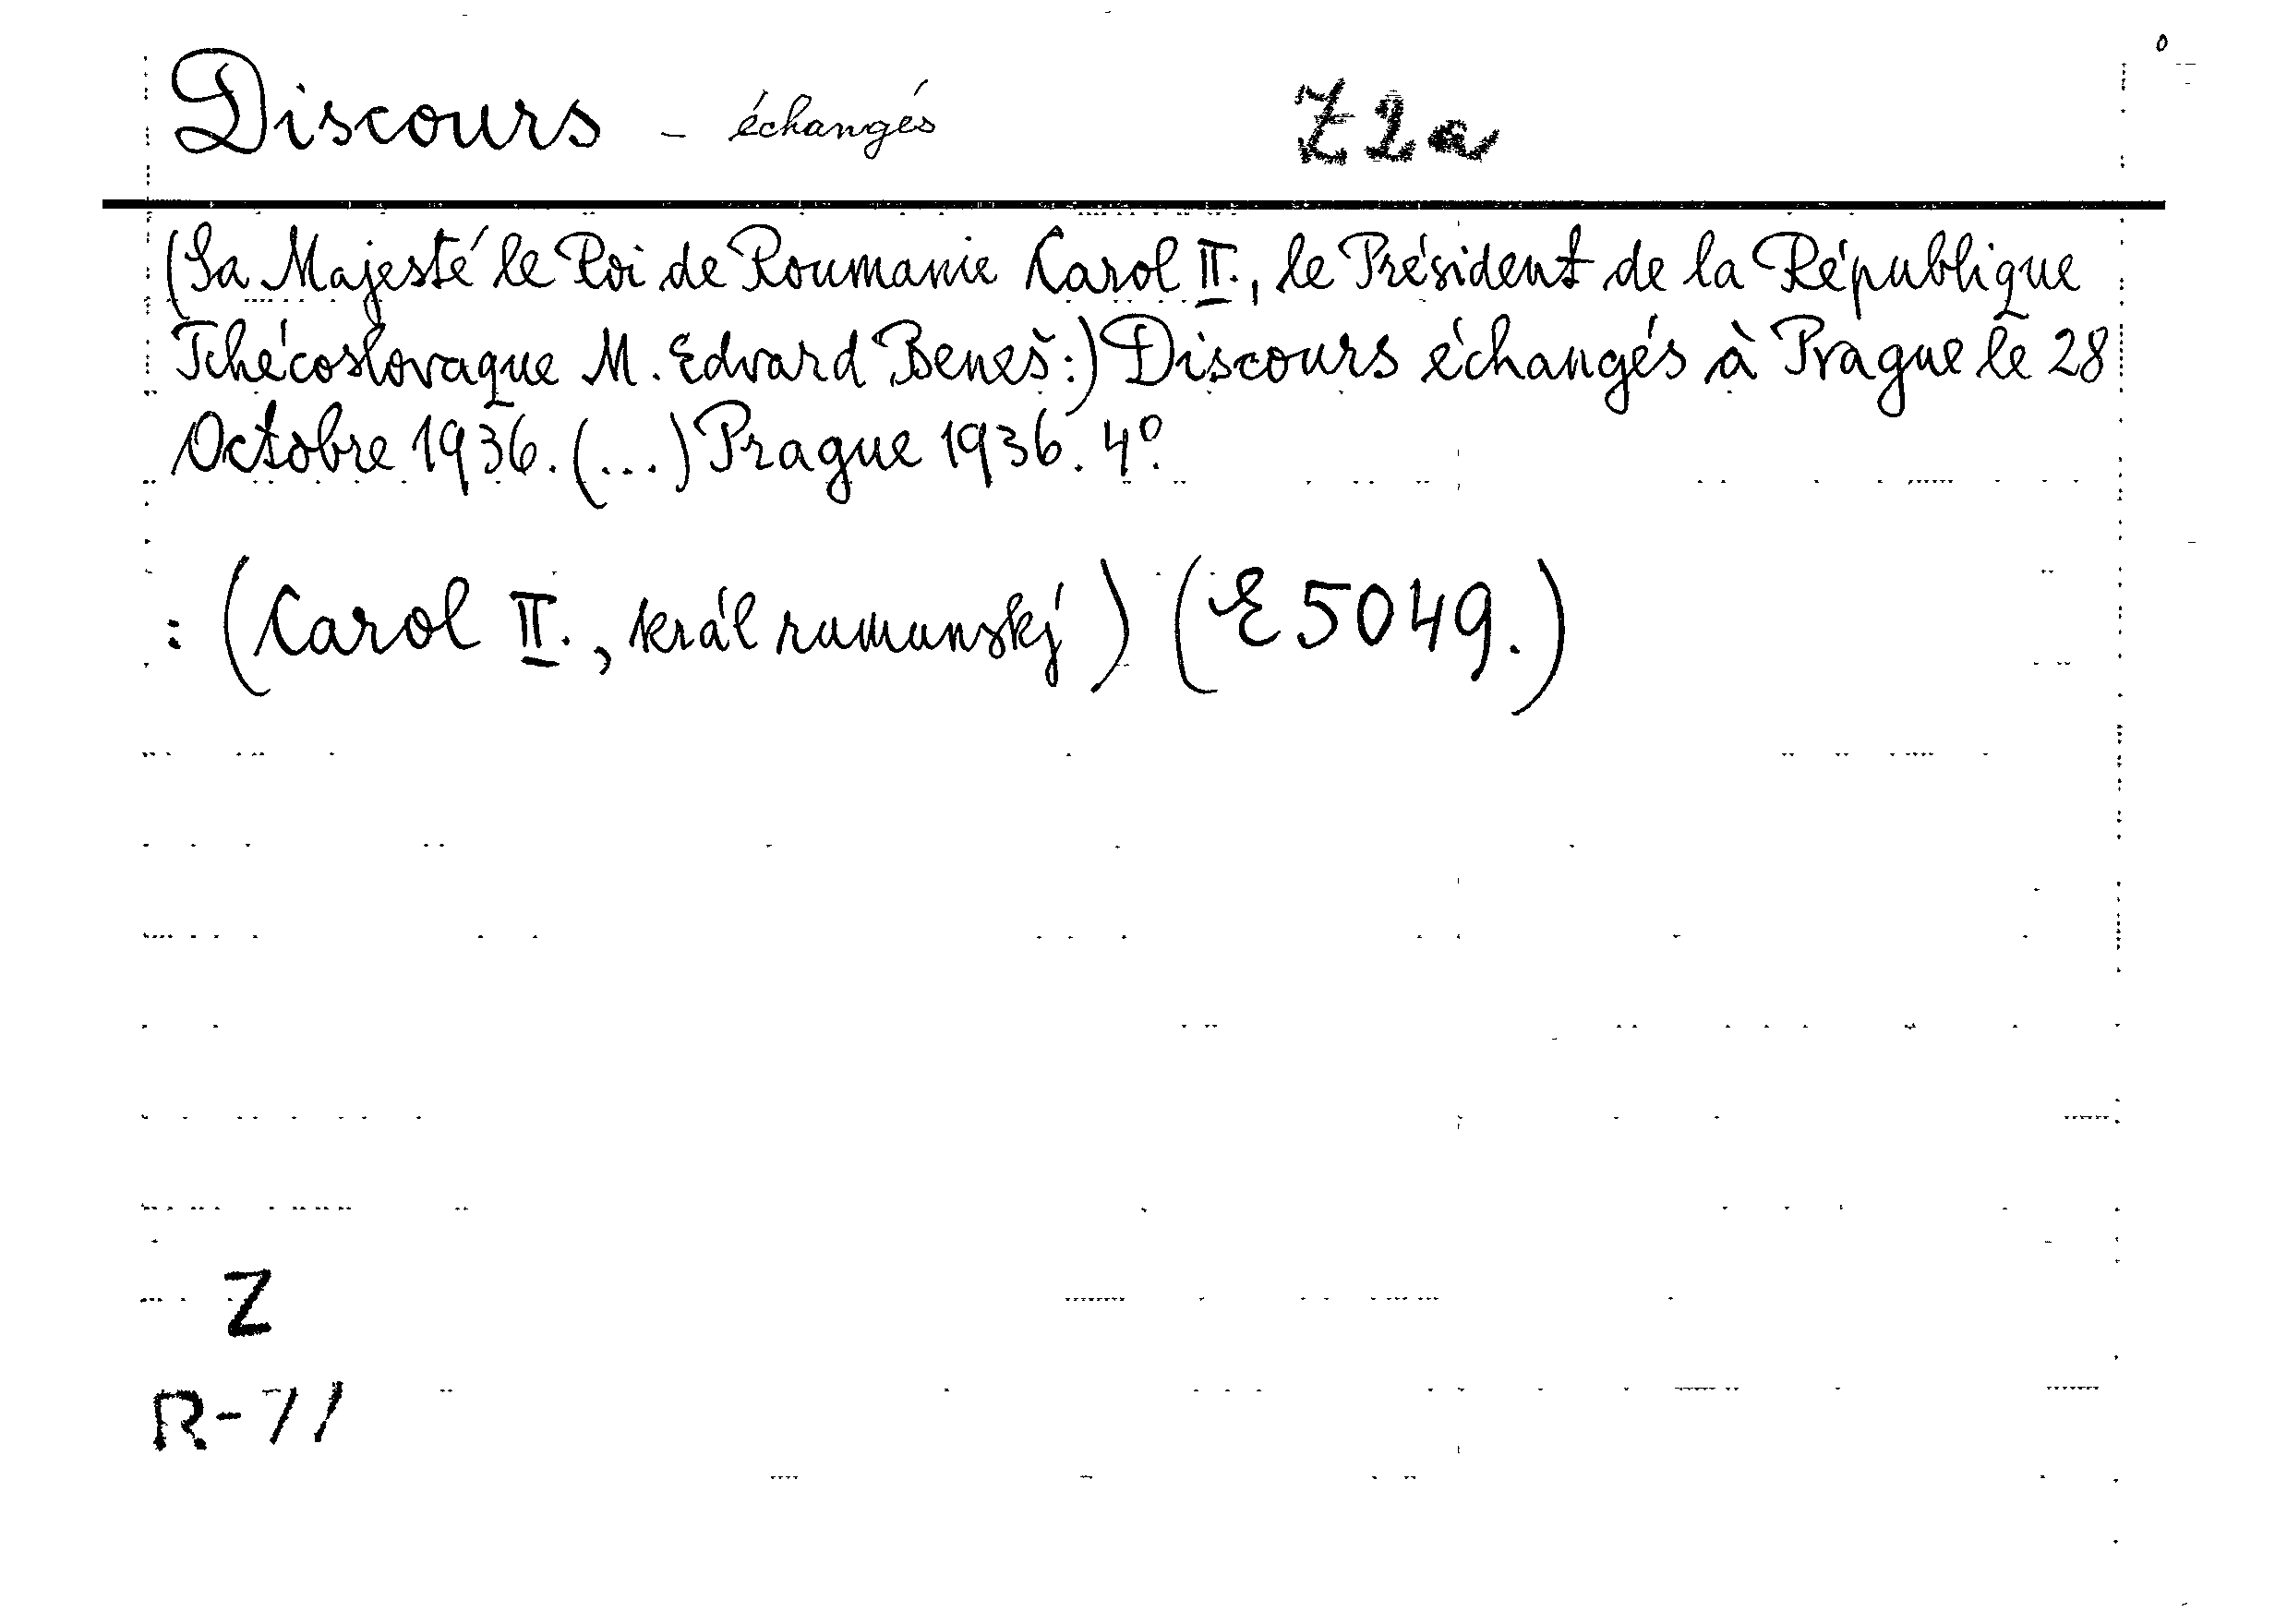 Discours - échangés Z2a
(Sa Majesté le Roi de Roumanie Carol II., le Président de la République
Tchécoslovaque M. Edvard Beneš:) Discours échangés à Prague le 28
Octobre 1936. (...) Prague 1936. 4º.
: (Carol II., král rumunský) (E 5049.)
Z
R-71